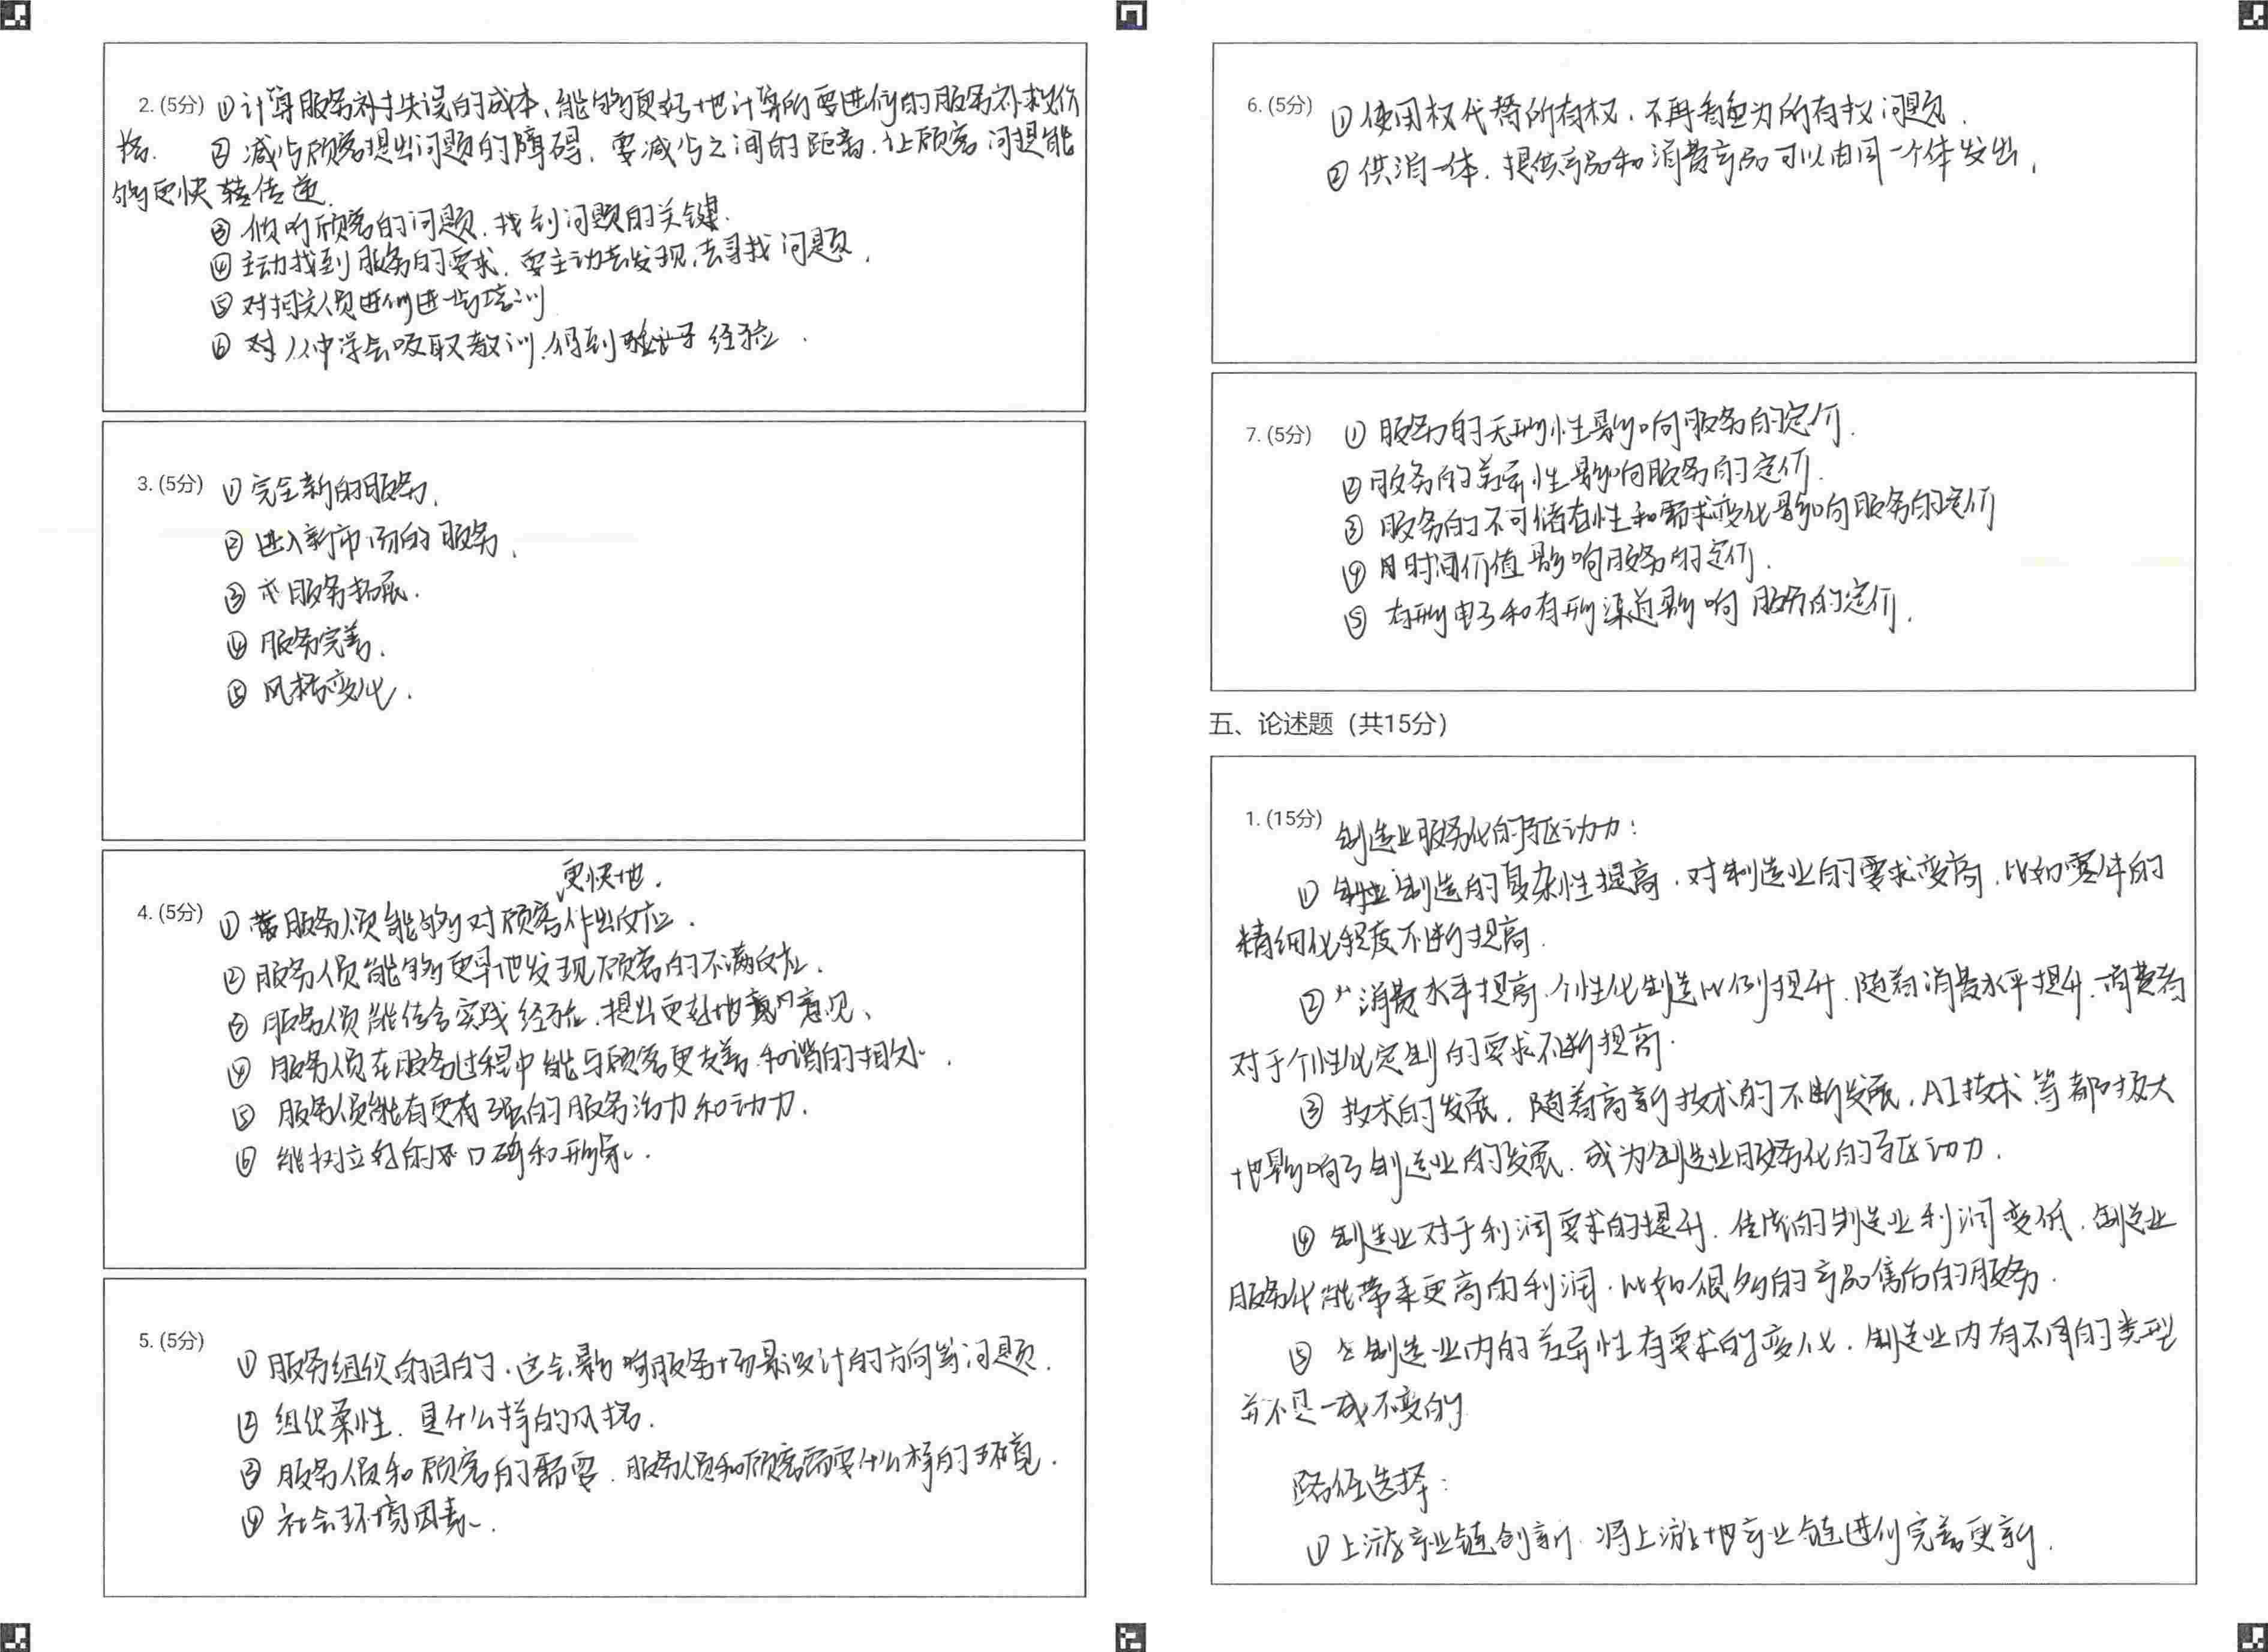 2. (5分) ①计算服务补救失误的成本,能够更好地计算所要进行的服务补救价
格. ②减少顾客提出问题的障碍,要减少之间的距离,让顾客问提能
够更快转传递.
③倾听顾客的问题,找到问题的关键.
④主动找到服务的要求,要主动去发现,去寻找问题.
⑤对相关人员进行进一步培训
⑥对从中学会吸取教训,得到 经验.
3. (5分) ①完全新的服务.
②进入新市场的服务.
③服务拓展.
④服务完善.
⑤风格变化.
更快地.
4. (5分) ①服务人员能够对顾客作出反应.
②服务人员能够更早地发现顾客的不满反应.
③服务人员能结合实践经验,提出更好地意见、
④服务人员在服务过程中能与顾客更友善和谐的相处.
⑤服务人员能有更有强的服务活力和动力.
⑥能树立好的口碑和形象.
5. (5分)
①服务组织的目的,这会影响服务场景设计的方向等问题.
②组织柔性,是什么样的风格.
③服务人员和顾客的需要,服务人员和顾客需要什么样的环境.
④社会环境因素.
6. (5分) ①使用权代替所有权,不再 为所有权问题.
②供消一体,提供产品和消费产品可以由同一个体发出.
7. (5分) ①服务的无形性影响服务的定价.
②服务的差异性影响服务的定价.
③服务的不可储存性和需求变化影响服务的定价
④时间价值影响服务的定价.
⑤有形电子和有形渠道影响服务的定价.
五、论述题(共15分)
1. (15分) 制造业服务化的驱动力:
①制造的复杂性提高,对制造业的要求变高,比如零件的
精细化程度不断提高.
②消费水平提高,个性化制造比例提升,随着消费水平提升,消费者
对于个性化定制的要求不断提高.
③技术的发展,随着高新技术的不断发展,AI技术等都极大
地影响了制造业的发展,成为制造业服务化的驱动力.
④制造业对于利润要求的提升,传统的制造业利润变低,制造业
服务化能带来更高的利润,比如很多的产品售后的服务.
⑤制造业内的差异性有要求的变化,制造业内有不同的类型
并不是一成不变的
路径选择:
①上游产业链创新,将上游地产业链进行完善更新.